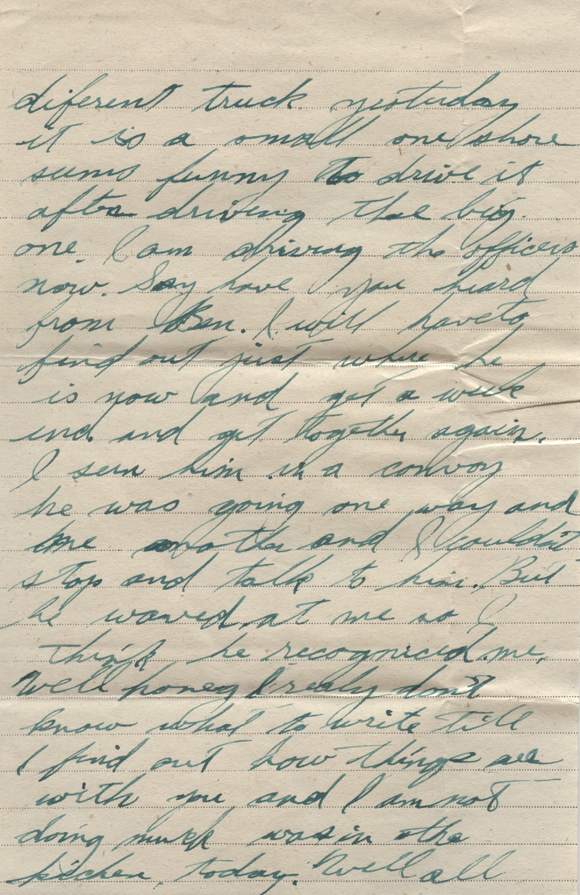 diferent truck yesturday
it is a small one shore
sums funny to drive it
after driving the big
one. I am driving the officers
now. Say have you heard
from Ben. I will have to
find out just where he
is now and get a week
end. and get together again.
I seen him in a convoy
he was going one way and
me another and I couldn't
stop and talk to him. But
he waved at me so I
think he recognicied me.
Well honey I realy don't
know what to write till
I find out how things are
with you and I am not
doing much was in the
kichen, today. Well all